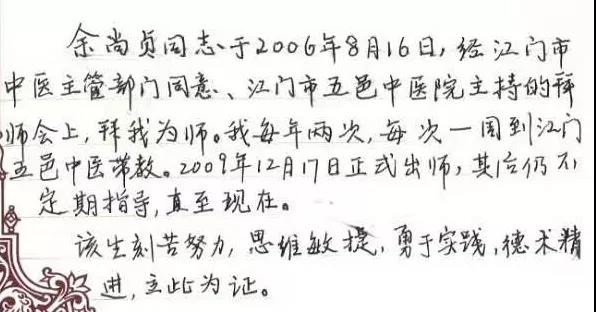 余尚贞同志于2006年8月16日,经江门市
中医主管部门同意、江门市五邑中医院主持的拜
师会上,拜我为师。我每年两次,每次一周到江门
五邑中医带教。2009年12月17日正式出师,其后仍不
定期指导,直至现在。
该生刻苦努力,思维敏捷,勇于实践,德术精
进,立此为证。